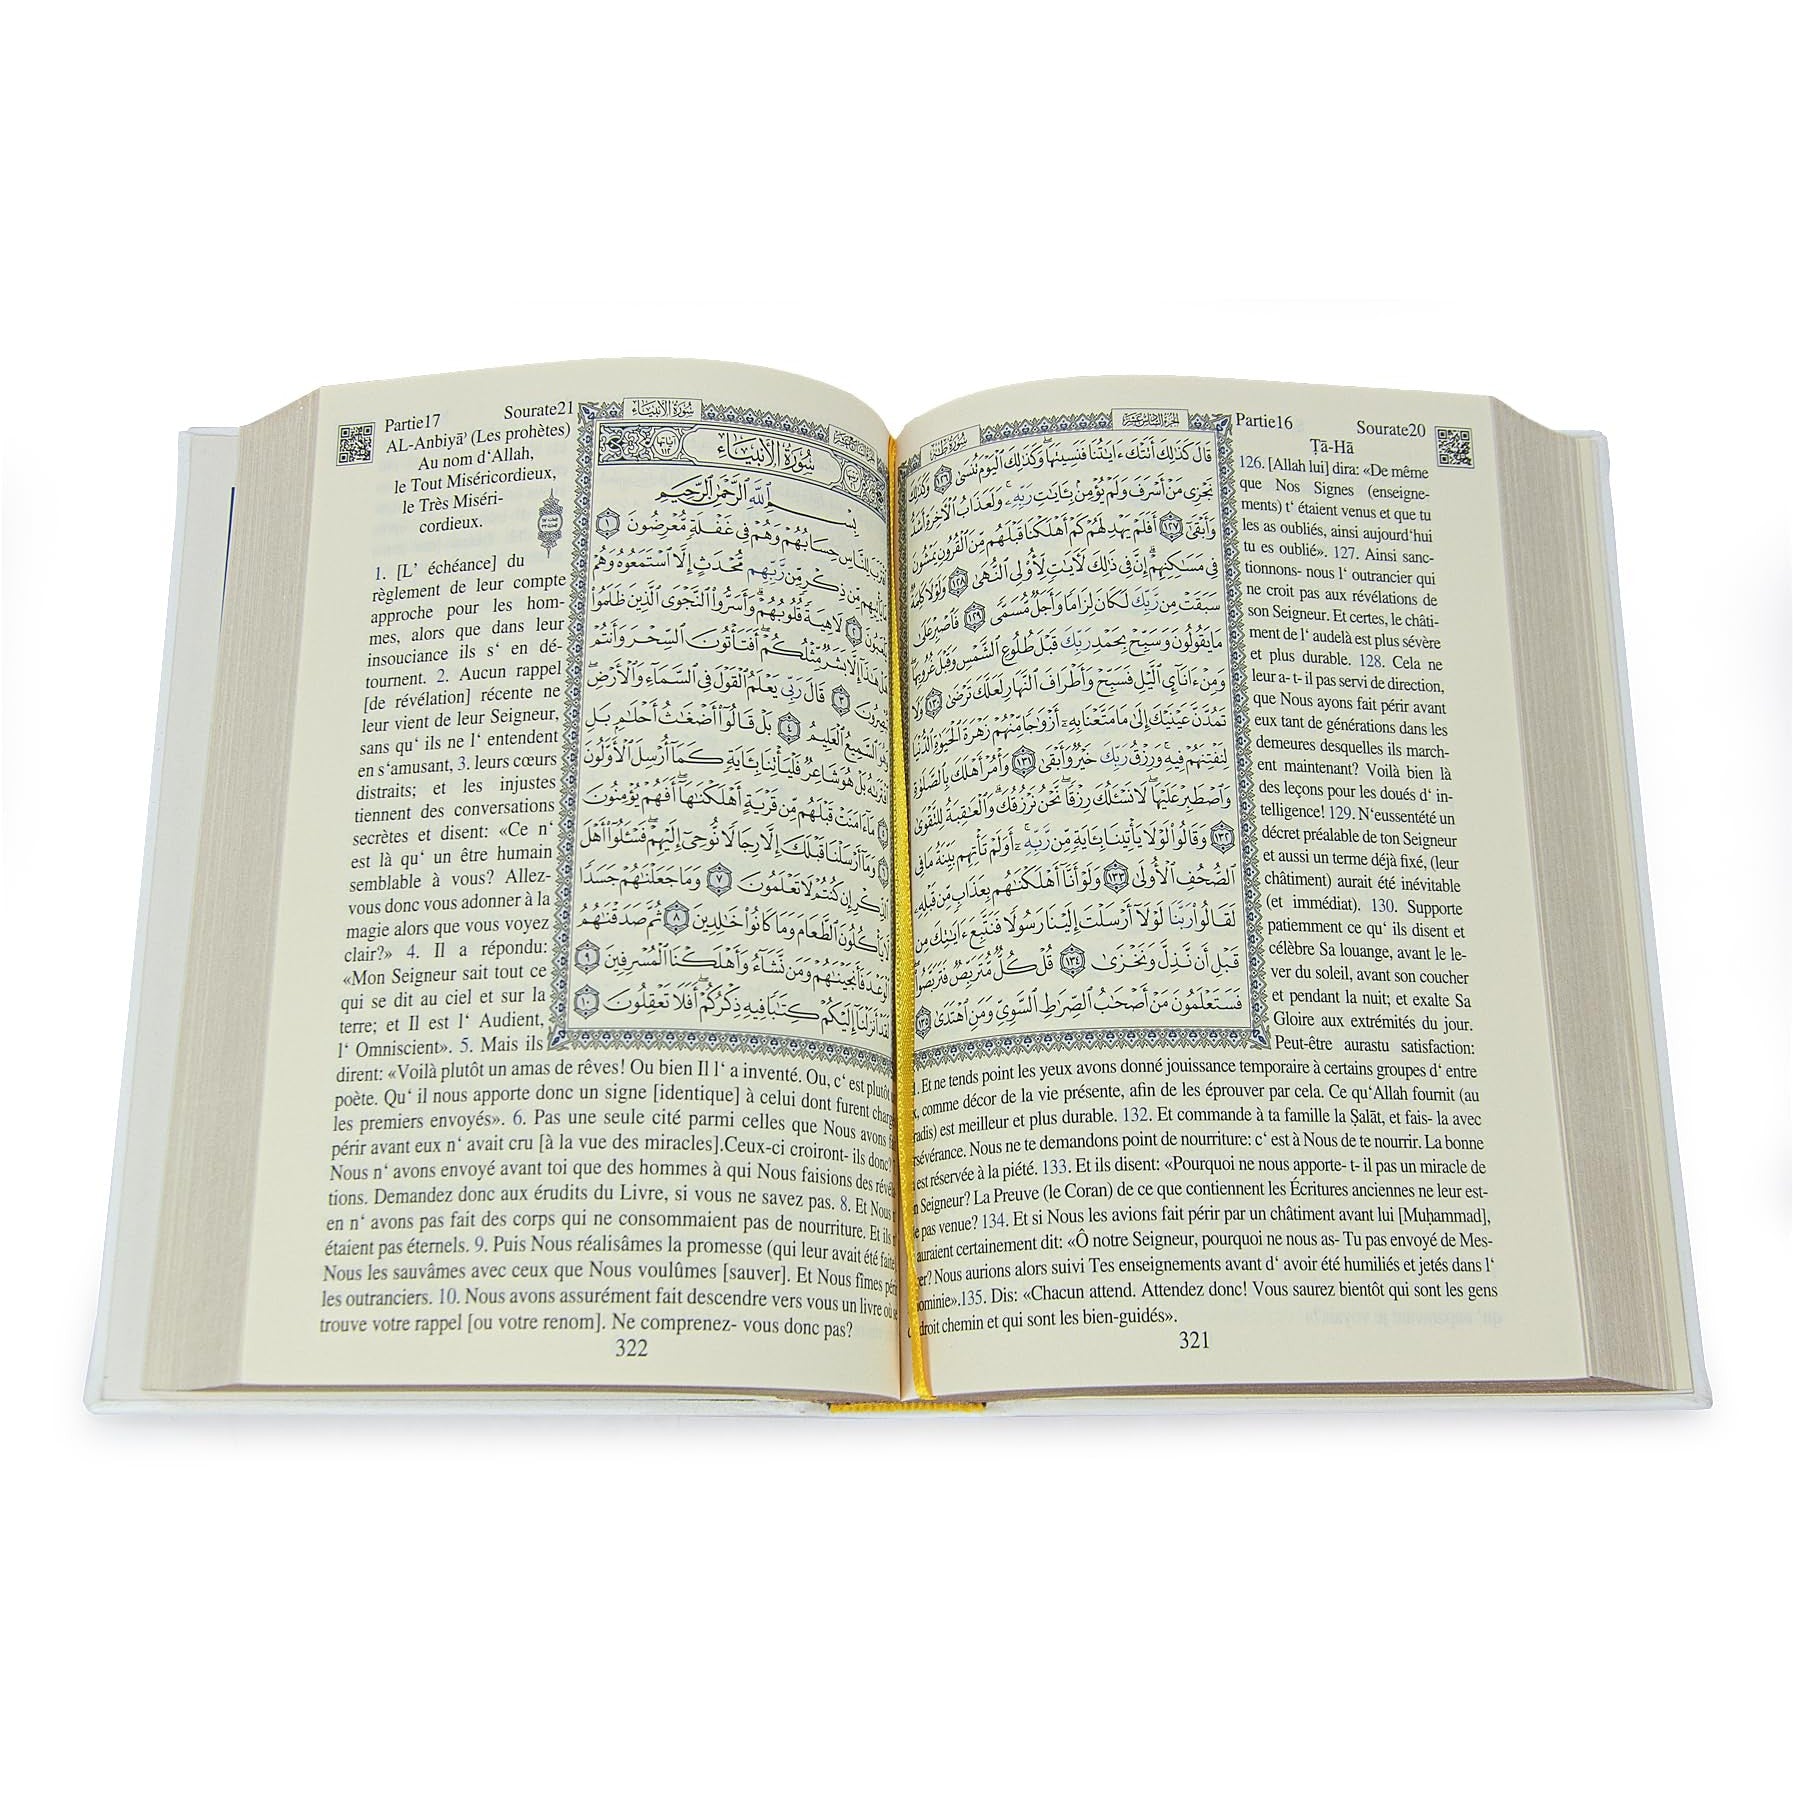 Partie16
Sourate20
Ṭā-Hā
الجزء السادس عشر
سورة طه
قَالَ كَذَٰلِكَ أَتَتْكَ ءَايَٰتُنَا فَنَسِيتَهَا ۖ وَكَذَٰلِكَ ٱلْيَوْمَ تُنسَىٰ ١٢٦ وَكَذَٰلِكَ
نَجْزِى مَنْ أَسْرَفَ وَلَمْ يُؤْمِنۢ بِـَٔايَٰتِ رَبِّهِۦ ۚ وَلَعَذَابُ ٱلْءَاخِرَةِ أَشَدُّ
وَأَبْقَىٰٓ ١٢٧ أَفَلَمْ يَهْدِ لَهُمْ كَمْ أَهْلَكْنَا قَبْلَهُم مِّنَ ٱلْقُرُونِ يَمْشُونَ
فِى مَسَٰكِنِهِمْ ۗ إِنَّ فِى ذَٰلِكَ لَءَايَٰتٍ لِّأُو۟لِى ٱلنُّهَىٰ ١٢٨ وَلَوْلَا كَلِمَةٌ
سَبَقَتْ مِن رَّبِّكَ لَكَانَ لِزَامًا وَأَجَلٌ مُّسَمًّى ١٢٩ فَٱصْبِرْ عَلَىٰ
مَا يَقُولُونَ وَسَبِّحْ بِحَمْدِ رَبِّكَ قَبْلَ طُلُوعِ ٱلشَّمْسِ وَقَبْلَ غُرُوبِهَا ۖ
وَمِنْ ءَانَآئِ ٱلَّيْلِ فَسَبِّحْ وَأَطْرَافَ ٱلنَّهَارِ لَعَلَّكَ تَرْضَىٰ ١٣٠ وَلَا
تَمُدَّنَّ عَيْنَيْكَ إِلَىٰ مَا مَتَّعْنَا بِهِۦٓ أَزْوَٰجًا مِّنْهُمْ زَهْرَةَ ٱلْحَيَوٰةِ ٱلدُّنْيَا
لِنَفْتِنَهُمْ فِيهِ ۚ وَرِزْقُ رَبِّكَ خَيْرٌ وَأَبْقَىٰ ١٣١ وَأْمُرْ أَهْلَكَ بِٱلصَّلَوٰةِ
وَٱصْطَبِرْ عَلَيْهَا ۖ لَا نَسْـَٔلُكَ رِزْقًا ۖ نَّحْنُ نَرْزُقُكَ ۗ وَٱلْعَٰقِبَةُ لِلتَّقْوَىٰ
١٣٢ وَقَالُوا۟ لَوْلَا يَأْتِينَا بِـَٔايَةٍ مِّن رَّبِّهِۦٓ ۚ أَوَلَمْ تَأْتِهِم بَيِّنَةُ مَا فِى
ٱلصُّحُفِ ٱلْأُولَىٰ ١٣٣ وَلَوْ أَنَّآ أَهْلَكْنَٰهُم بِعَذَابٍ مِّن قَبْلِهِۦ
لَقَالُوا۟ رَبَّنَا لَوْلَآ أَرْسَلْتَ إِلَيْنَا رَسُولًا فَنَتَّبِعَ ءَايَٰتِكَ مِن
قَبْلِ أَن نَّذِلَّ وَنَخْزَىٰ ١٣٤ قُلْ كُلٌّ مُّتَرَبِّصٌ فَتَرَبَّصُوا۟ ۖ
فَسَتَعْلَمُونَ مَنْ أَصْحَٰبُ ٱلصِّرَٰطِ ٱلسَّوِىِّ وَمَنِ ٱهْتَدَىٰ ١٣٥
126. [Allah lui] dira: «De même
que Nos Signes (enseigne-
ments) t‘ étaient venus et que tu
les as oubliés, ainsi aujourd‘hui
tu es oublié». 127. Ainsi sanc-
tionnons- nous l‘ outrancier qui
ne croit pas aux révélations de
son Seigneur. Et certes, le châti-
ment de l‘ audelà est plus sévère
et plus durable. 128. Cela ne
leur a- t- il pas servi de direction,
que Nous ayons fait périr avant
eux tant de générations dans les
demeures desquelles ils march-
ent maintenant? Voilà bien là
des leçons pour les doués d‘ in-
telligence! 129. N‘eussentété un
décret préalable de ton Seigneur
et aussi un terme déjà fixé, (leur
châtiment) aurait été inévitable
(et immédiat). 130. Supporte
patiemment ce qu‘ ils disent et
célèbre Sa louange, avant le le-
ver du soleil, avant son coucher
et pendant la nuit; et exalte Sa
Gloire aux extrémités du jour.
Peut-être aurastu satisfaction:
Et ne tends point les yeux avons donné jouissance temporaire à certains groupes d‘ entre
comme décor de la vie présente, afin de les éprouver par cela. Ce qu‘Allah fournit (au
est meilleur et plus durable. 132. Et commande à ta famille la Ṣalāt, et fais- la avec
Nous ne te demandons point de nourriture: c‘ est à Nous de te nourrir. La bonne
est réservée à la piété. 133. Et ils disent: «Pourquoi ne nous apporte- t- il pas un miracle de
Seigneur? La Preuve (le Coran) de ce que contiennent les Écritures anciennes ne leur est-
pas venue? 134. Et si Nous les avions fait périr par un châtiment avant lui [Muḥammad],
auraient certainement dit: «Ô notre Seigneur, pourquoi ne nous as- Tu pas envoyé de Mes-
Nous aurions alors suivi Tes enseignements avant d‘ avoir été humiliés et jetés dans l‘
135. Dis: «Chacun attend. Attendez donc! Vous saurez bientôt qui sont les gens
droit chemin et qui sont les bien-guidés».
321
Partie17
Sourate21
AL-Anbiyā’ (Les prohètes)
Au nom d‘Allah,
le Tout Miséricordieux,
le Très Miséri-
cordieux.
سورة الأنبياء
سُورَةُ الأَنْبِيَاء
آياتها ١١٢
بِسْمِ ٱللَّهِ ٱلرَّحْمَٰنِ ٱلرَّحِيمِ
لِلنَّاسِ حِسَابُهُمْ وَهُمْ فِى غَفْلَةٍ مُّعْرِضُونَ ١
مِّن ذِكْرٍ مِّن رَّبِّهِم مُّحْدَثٍ إِلَّا ٱسْتَمَعُوهُ وَهُمْ
٢ لَاهِيَةً قُلُوبُهُمْ ۗ وَأَسَرُّوا۟ ٱلنَّجْوَى ٱلَّذِينَ ظَلَمُوا۟
هَلْ هَٰذَآ إِلَّا بَشَرٌ مِّثْلُكُمْ ۖ أَفَتَأْتُونَ ٱلسِّحْرَ وَأَنتُمْ
٣ قَالَ رَبِّى يَعْلَمُ ٱلْقَوْلَ فِى ٱلسَّمَآءِ وَٱلْأَرْضِ ۖ
وَهُوَ ٱلسَّمِيعُ ٱلْعَلِيمُ ٤ بَلْ قَالُوٓا۟ أَضْغَٰثُ أَحْلَٰمٍۭ بَلِ
ٱفْتَرَىٰهُ بَلْ هُوَ شَاعِرٌ فَلْيَأْتِنَا بِـَٔايَةٍ كَمَآ أُرْسِلَ ٱلْأَوَّلُونَ
٥ مَآ ءَامَنَتْ قَبْلَهُم مِّن قَرْيَةٍ أَهْلَكْنَٰهَآ ۖ أَفَهُمْ يُؤْمِنُونَ
٦ وَمَآ أَرْسَلْنَا قَبْلَكَ إِلَّا رِجَالًا نُّوحِىٓ إِلَيْهِمْ ۖ فَسْـَٔلُوٓا۟ أَهْلَ
ٱلذِّكْرِ إِن كُنتُمْ لَا تَعْلَمُونَ ٧ وَمَا جَعَلْنَٰهُمْ جَسَدًا
لَّا يَأْكُلُونَ ٱلطَّعَامَ وَمَا كَانُوا۟ خَٰلِدِينَ ٨ ثُمَّ صَدَقْنَٰهُمُ
ٱلْوَعْدَ فَأَنجَيْنَٰهُمْ وَمَن نَّشَآءُ وَأَهْلَكْنَا ٱلْمُسْرِفِينَ ٩
لَقَدْ أَنزَلْنَآ إِلَيْكُمْ كِتَٰبًا فِيهِ ذِكْرُكُمْ ۖ أَفَلَا تَعْقِلُونَ ١٠
1. [L‘ échéance] du
règlement de leur compte
approche pour les hom-
mes, alors que dans leur
insouciance ils s‘ en dé-
tournent. 2. Aucun rappel
[de révélation] récente ne
leur vient de leur Seigneur,
sans qu‘ ils ne l‘ entendent
en s‘amusant, 3. leurs cœurs
distraits; et les injustes
tiennent des conversations
secrètes et disent: «Ce n‘
est là qu‘ un être humain
semblable à vous? Allez-
vous donc vous adonner à la
magie alors que vous voyez
clair?» 4. Il a répondu:
«Mon Seigneur sait tout ce
qui se dit au ciel et sur la
terre; et Il est l‘ Audient,
l‘ Omniscient». 5. Mais ils
dirent: «Voilà plutôt un amas de rêves! Ou bien Il l‘ a inventé. Ou, c‘ est plutôt
poète. Qu‘ il nous apporte donc un signe [identique] à celui dont furent
les premiers envoyés». 6. Pas une seule cité parmi celles que Nous avons
périr avant eux n‘ avait cru [à la vue des miracles].Ceux-ci croiront- ils donc?
Nous n‘ avons envoyé avant toi que des hommes à qui Nous faisions des
tions. Demandez donc aux érudits du Livre, si vous ne savez pas. 8. Et Nous
en n‘ avons pas fait des corps qui ne consommaient pas de nourriture. Et ils
étaient pas éternels. 9. Puis Nous réalisâmes la promesse (qui leur avait été
Nous les sauvâmes avec ceux que Nous voulûmes [sauver]. Et Nous fîmes
les outranciers. 10. Nous avons assurément fait descendre vers vous un livre où
trouve votre rappel [ou votre renom]. Ne comprenez- vous donc pas?
322